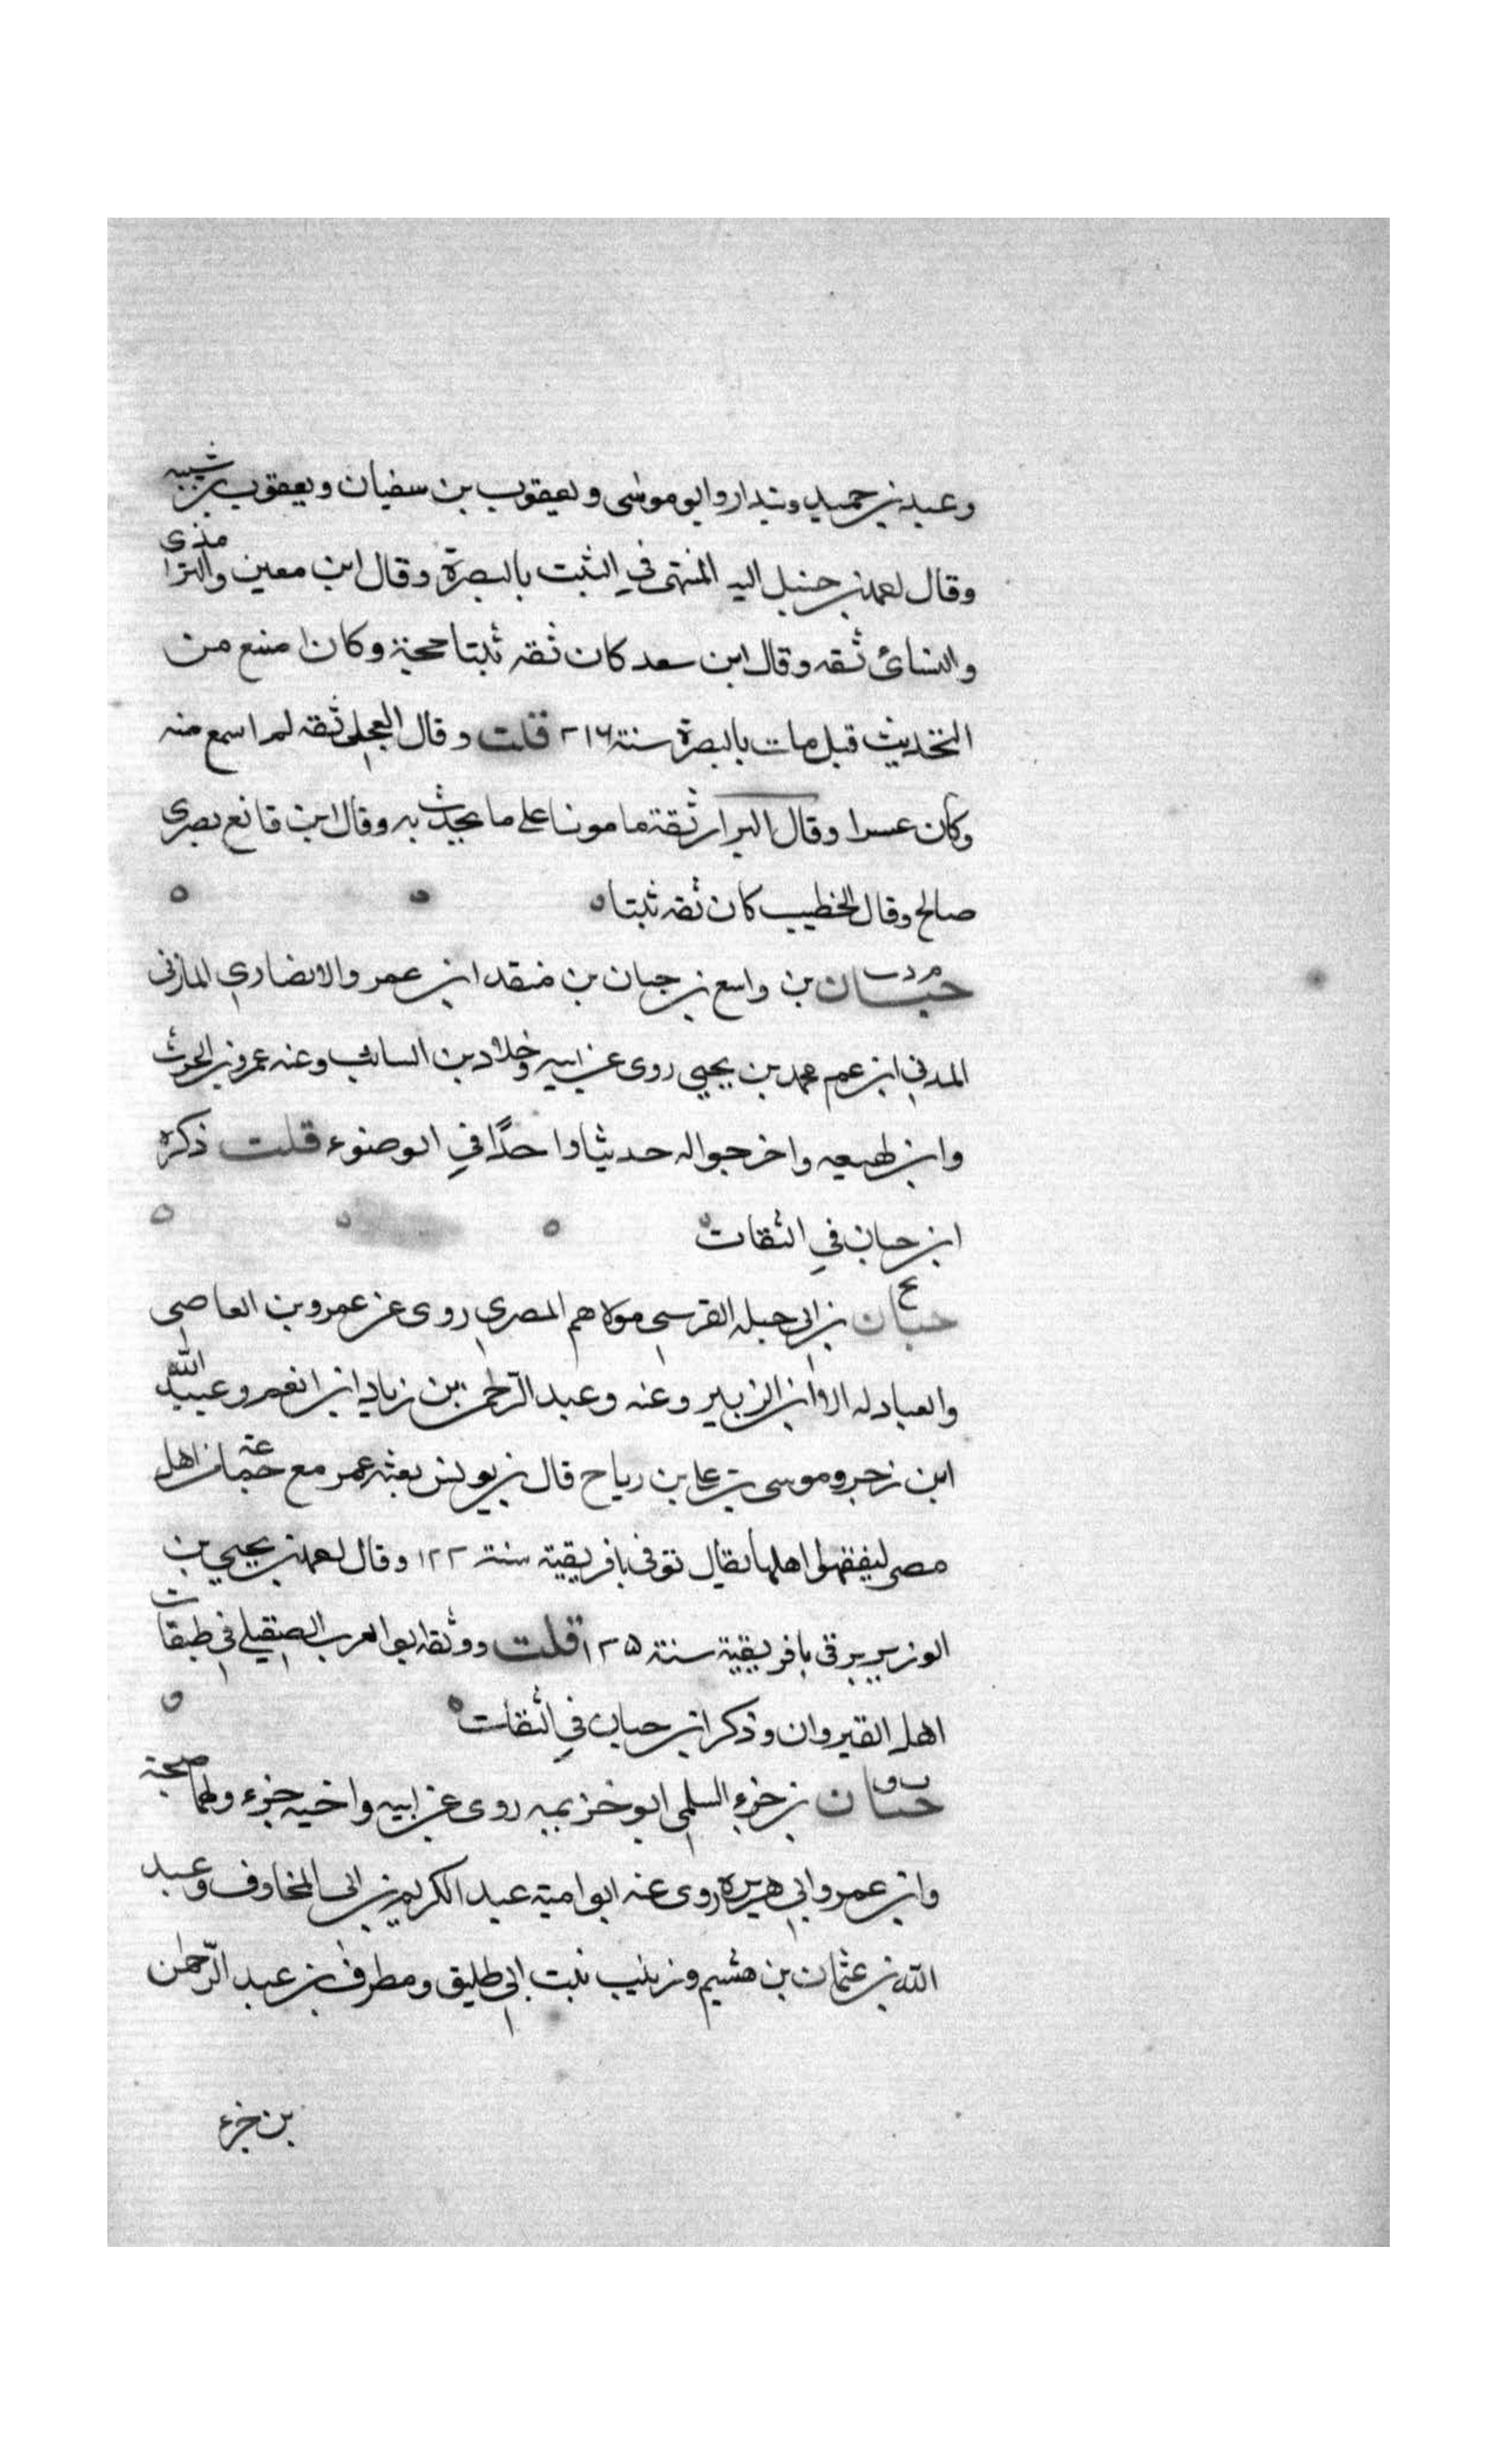 وعبد بن حميد وبندار وابو موسى ويعقوب بن سفيان ويعقوب بن شيبه
وقال احمد بن حنبل اليه المنتهى في الثبت بالبصرة وقال ابن معين والترمذى
والنسائ ثقه وقال ابن سعد كان ثقه ثبتا حجة وكان امتنع من
التحديث قبل مات بالبصرة سنة ٢١٦ قلت وقال العجلى ثقه لم اسمع منه
وكان عسرا وقال البزار ثقة مامونا على ما يحدث به وقال ابن قانع بصرى
صالح وقال الخطيب كان ثقه ثبتا
م د ت
حبان بن واسع بن حبان بن منقد ابن عمرو الانصاري المازنى
المدني ابن عم محمد بن يحيى روى عن ابيه وخلاد بن السائب وعنه عمرو بن الحرث
وابن لهيعه واخرجوا له حديثا واحدًا في الوضوء قلت ذكره
ابن حبان في الثقات
حبان بن ابى جبله القرسى مولاهم المصري روى عن عمرو بن العاصى
والعبادله الا ابن الزبير وعنه وعبد الرحمن بن زياد ابن انعم وعبيد الله
ابن زحر وموسى بن على بن رباح قال بن يونس بعثه عمر مع اهل
مصر ليفقهوا اهلها يقال توفى بافريقية سنة ١٢٢ وقال احمد بن يحيى بن
الوزير بافريقية سنة ١٢٥ قلت ووثقه ابو العرب الصقيلي في طبقات
اهل القيروان وذكر ابن حبان في الثقات
ت ق
حبان بن جزء السلمى ابو خزيمه روى عن ابيه واخيه خزء ولهما صحبة
وابن عمر وابي هريره روى عنه ابو امية عبد الكريم بن ابى المخارق وعبد
الله بن عثمان بن هشيم وزينب بنت ابى طليق ومطرف بن عبد الرحمن
بن خزء